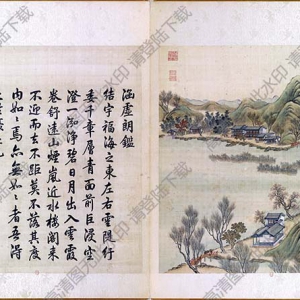 涵虛朗鑑
結宇福海之東左右雲隄紆
委千章層青面前巨浸空
澄一泓淨碧日月出入雲霞
卷舒遠山煙嵐近水樓閣來
不迎而去不距莫不落其度
內如如焉六無如如者吾得